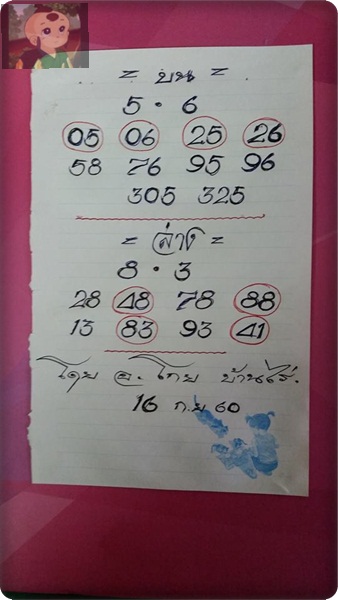 = บน =
5 • 6
05 06 25 26
58 76 95 96
305 325
= ล่าง =
8 • 3
28 48 78 88
13 83 93 41
โดย อ. ไทย บ้านไร่.
16 ก.ย 60